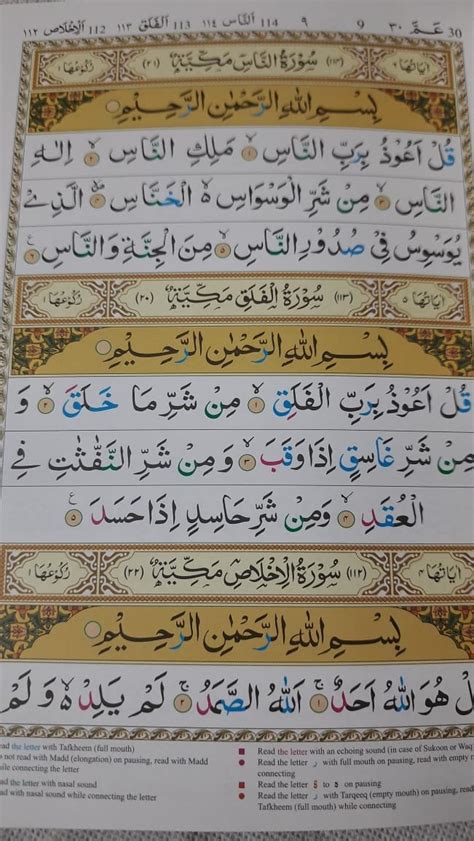 30 عَمَّ ٣٠ 9 ٩ 114 اَلنَّاس ١١٤ 113 اَلْفَلَق ١١٣ 112 اَلْاِخْلَاص ١١٢
اٰيَاتُهَا ٦ (١١٣) سُوْرَةُ النَّاسِ مَكِّيَّةٌ (٢١) رُكُوْعُهَا ١
بِسْمِ اللّٰهِ الرَّحْمٰنِ الرَّحِيْمِ
قُلْ اَعُوْذُ بِرَبِّ النَّاسِ ۙ١ مَلِكِ النَّاسِ ۙ٢ اِلٰهِ
النَّاسِ ۙ٣ مِنْ شَرِّ الْوَسْوَاسِ ە الْخَنَّاسِ ۙ٤ الَّذِيْ
يُوَسْوِسُ فِيْ صُدُوْرِ النَّاسِ ۙ٥ مِنَ الْجِنَّةِ وَالنَّاسِ ٦ ع
اٰيَاتُهَا ٥ (١١٣) سُوْرَةُ الْفَلَقِ مَكِّيَّةٌ (٢٠) رُكُوْعُهَا ١
بِسْمِ اللّٰهِ الرَّحْمٰنِ الرَّحِيْمِ
قُلْ اَعُوْذُ بِرَبِّ الْفَلَقِ ۙ١ مِنْ شَرِّ مَا خَلَقَ ۙ٢ وَ
مِنْ شَرِّ غَاسِقٍ اِذَا وَقَبَ ۙ٣ وَ مِنْ شَرِّ النَّفّٰثٰتِ فِي
الْعُقَدِ ۙ٤ وَمِنْ شَرِّ حَاسِدٍ اِذَا حَسَدَ ٥ ع
اٰيَاتُهَا ٤ (١١٢) سُوْرَةُ الْاِخْلَاصِ مَكِّيَّةٌ (٢٢) رُكُوْعُهَا ١
بِسْمِ اللّٰهِ الرَّحْمٰنِ الرَّحِيْمِ
لْ هُوَ اللّٰهُ اَحَدٌ ۚ١ اَللّٰهُ الصَّمَدُ ۚ٢ لَمْ يَلِدْ ە وَ لَمْ
ead the letter with Tafkheem (full mouth)
o not read with Madd (elongation) on pausing, read with Madd
hile connecting the letter
ead the letter with nasal sound
ad with nasal sound while connecting the letter
Read the letter with an echoing sound (in case of Sukoon or Waq
Read the letter ر with full mouth on pausing, read with empty
connecting
Read the letter ة to ه on pausing
Read the letter ر with Tarqeeq (empty mouth) on pausing, read
Tafkheem (full mouth) while connecting